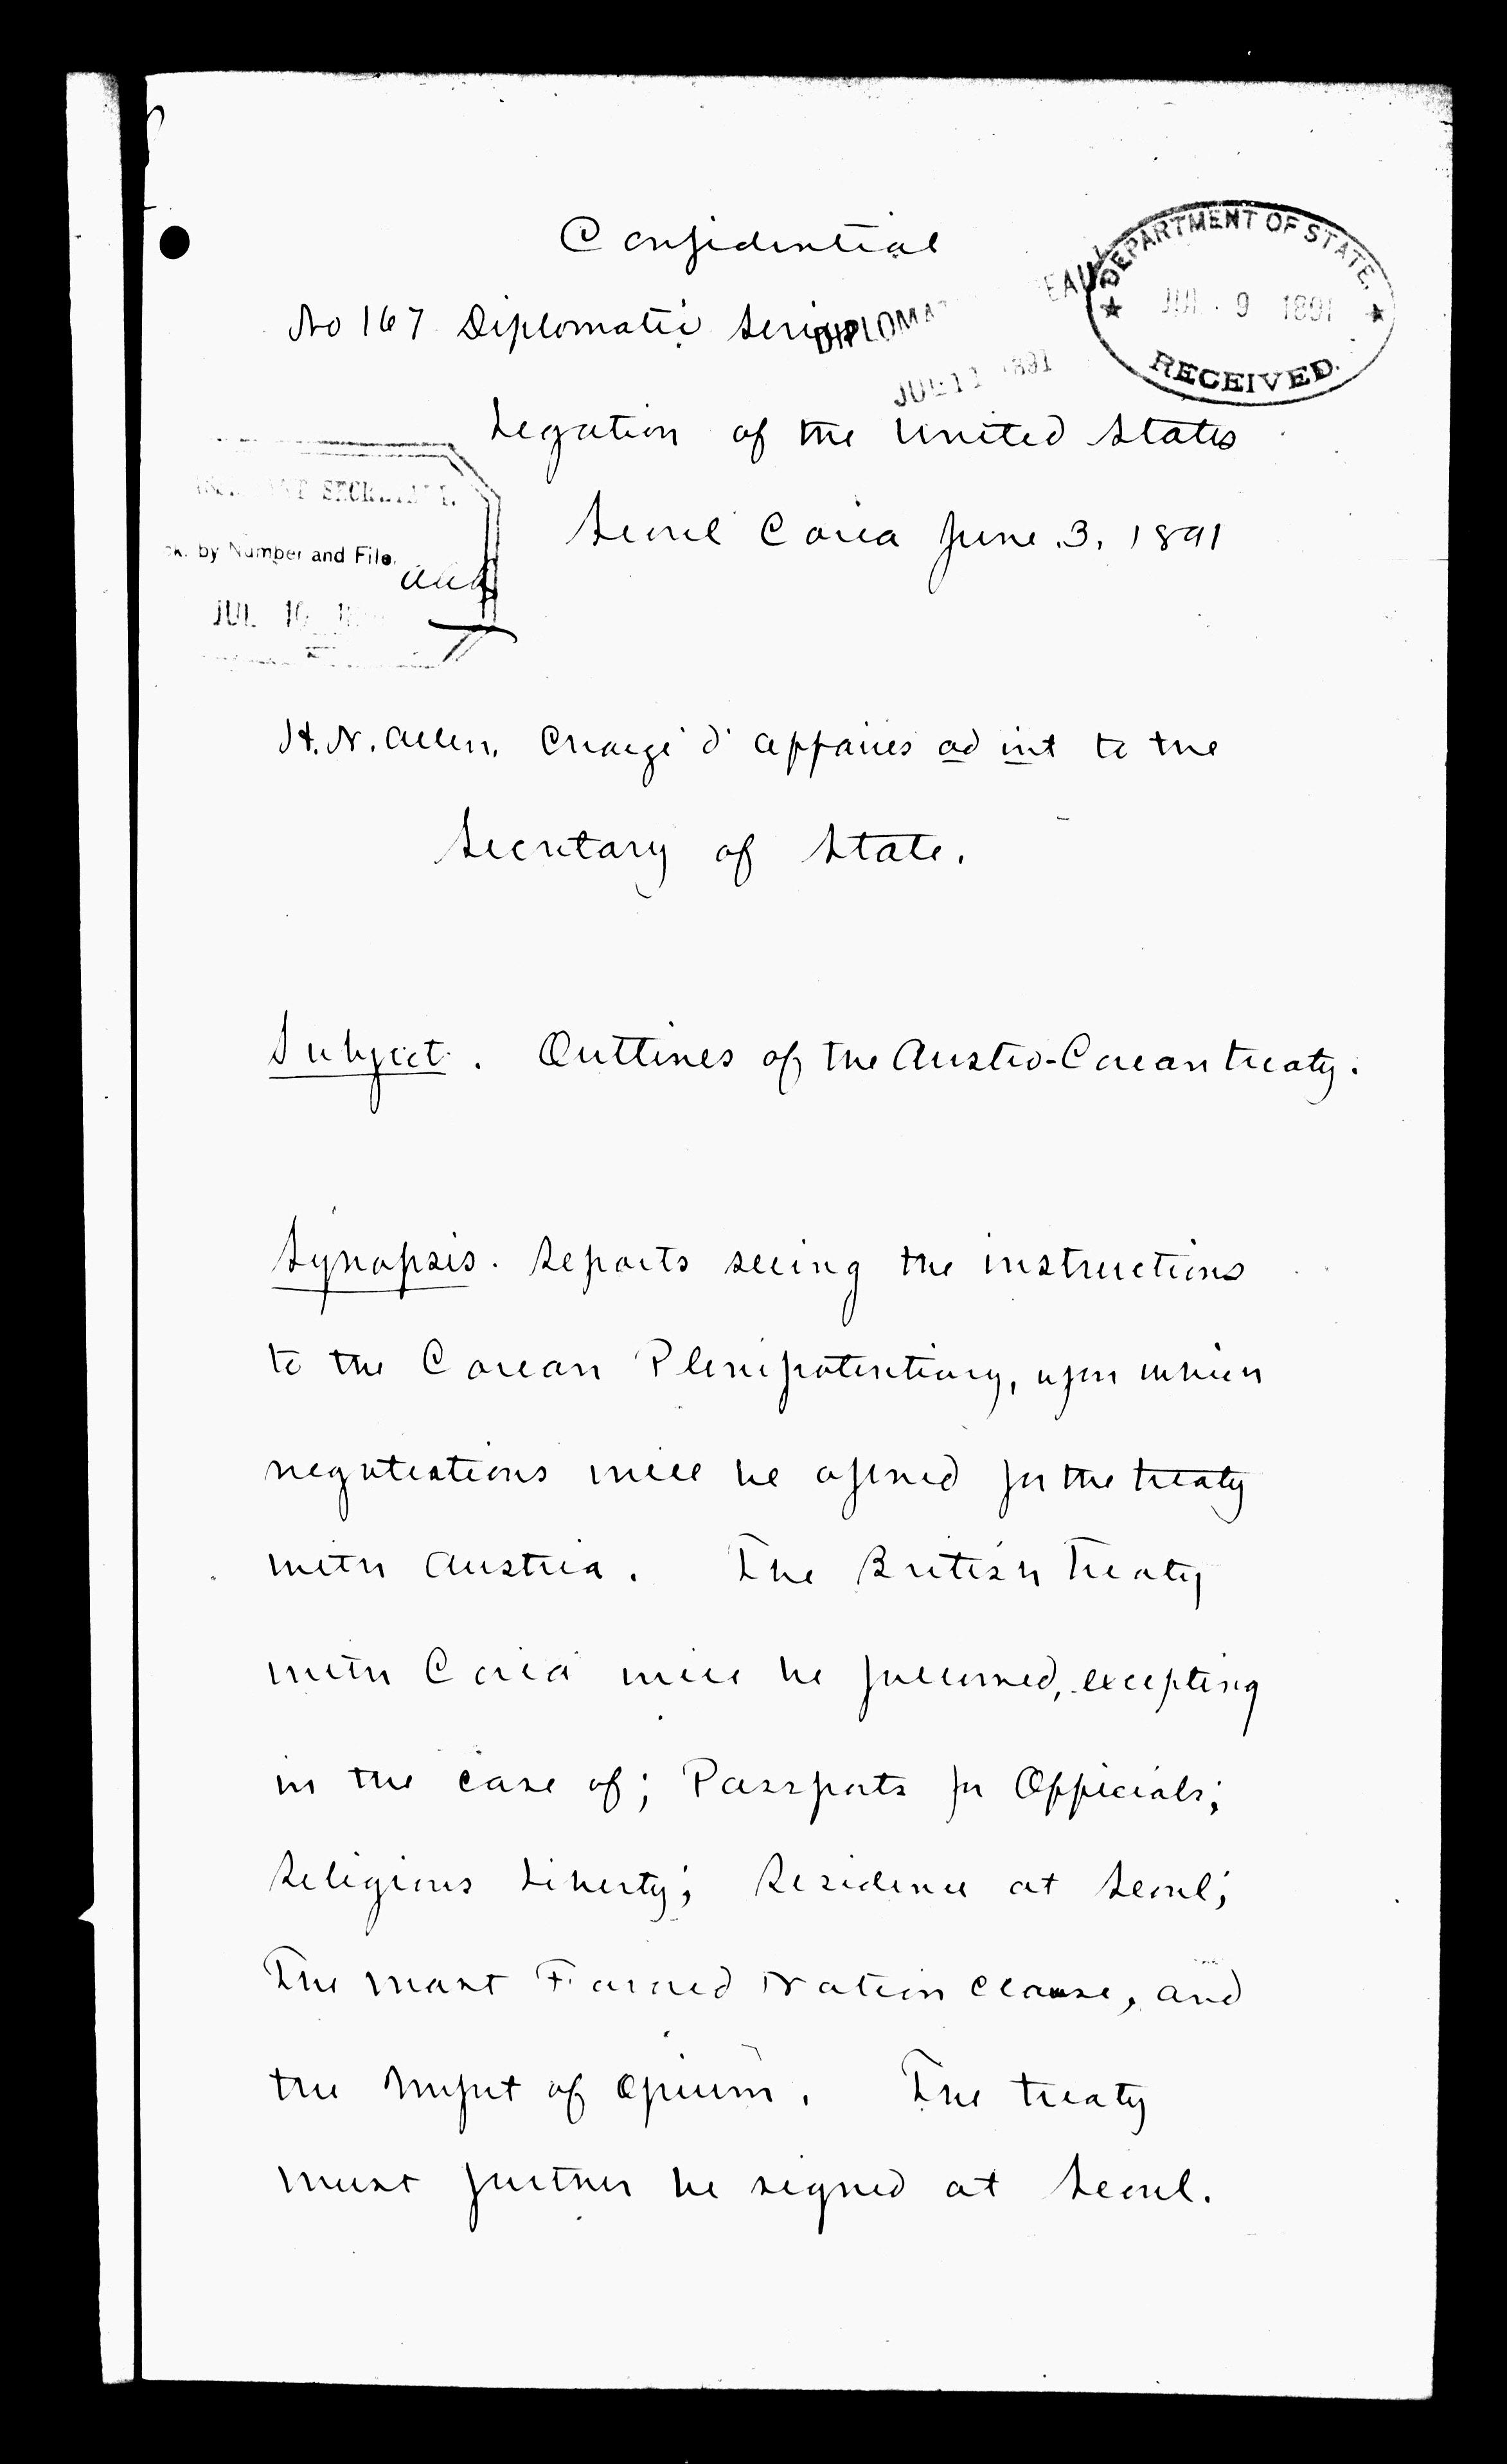 Confidential
No 167 Diplomatic Series
DEPARTMENT OF STATE.
JUL 9 1891
RECEIVED.
Legation of the United States
SECRETARY.
by Number and File.
JUL 10
Seoul Corea June. 3. 1891
H. N. Allen. Chargé d' affaires ad int to the
Secretary of State.
Subject. Outlines of the Austro-Corean treaty.
Synopsis. Reports seeing the instructions
to the Corean Plenipotentiary, upon which
negotiations will be opened for the treaty
with Austria. The British Treaty
with Corea will be followed, excepting
in the case of; Passports for Officials;
Religious Liberty; Residence at Seoul;
The most Favored Nation clause, and
the import of Opium. The treaty
must further be signed at Seoul.